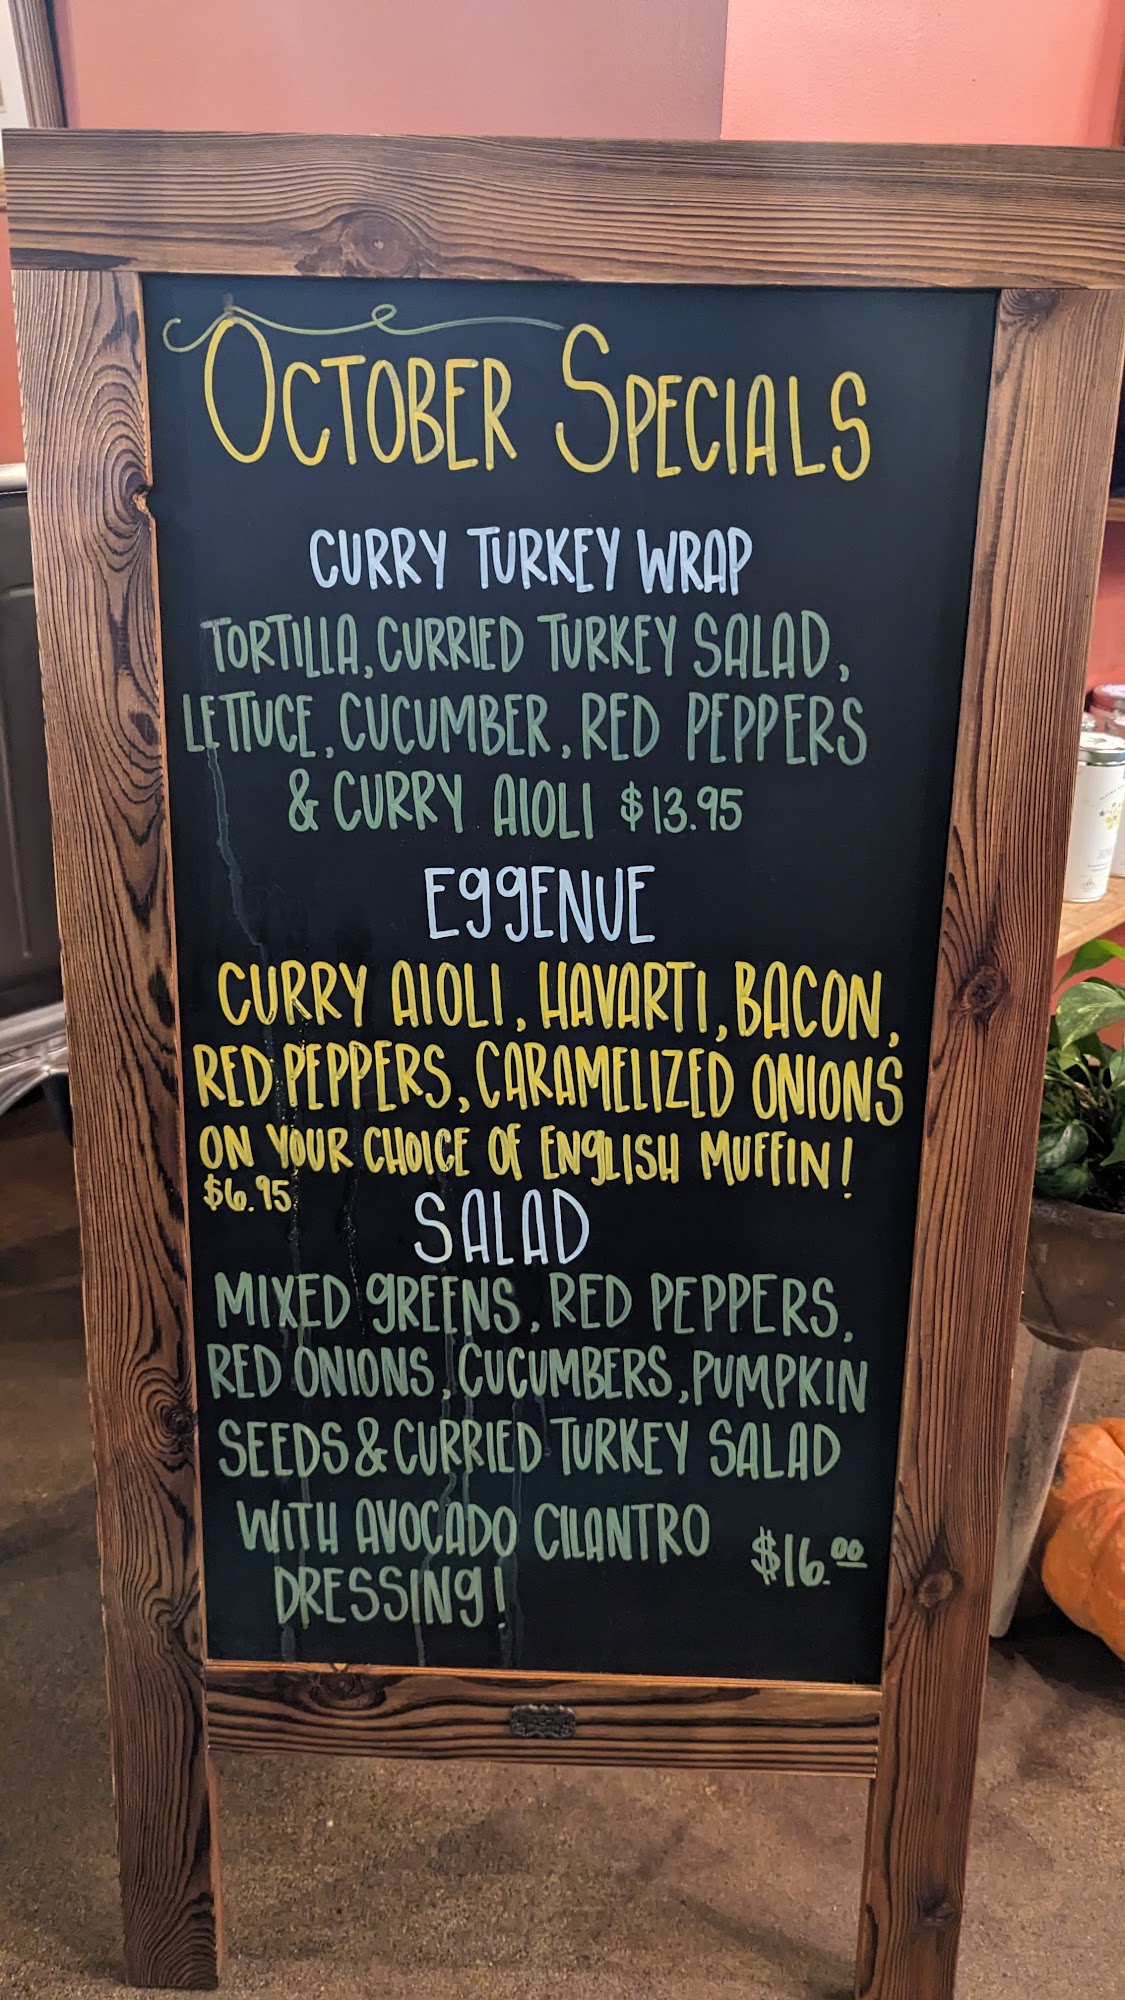 OCTOBER SPECIALS
CURRY TURKEY WRAP
TORTILLA, CURRIED TURKEY SALAD,
LETTUCE, CUCUMBER, RED PEPPERS
& CURRY AIOLI $13.95
EggENUE
CURRY AIOLI, HAVARTI, BACON,
RED PEPPERS, CARAMELIZED ONIONS
ON YOUR CHOICE OF ENgLISH MUFFIN!
$6.95
SALAD
MIXED gREENS, RED PEPPERS,
RED ONIONS, CUCUMBERS, PUMPKIN
SEEDS & CURRIED TURKEY SALAD
WITH AVOCADO CILANTRO
DRESSINg! $16.00